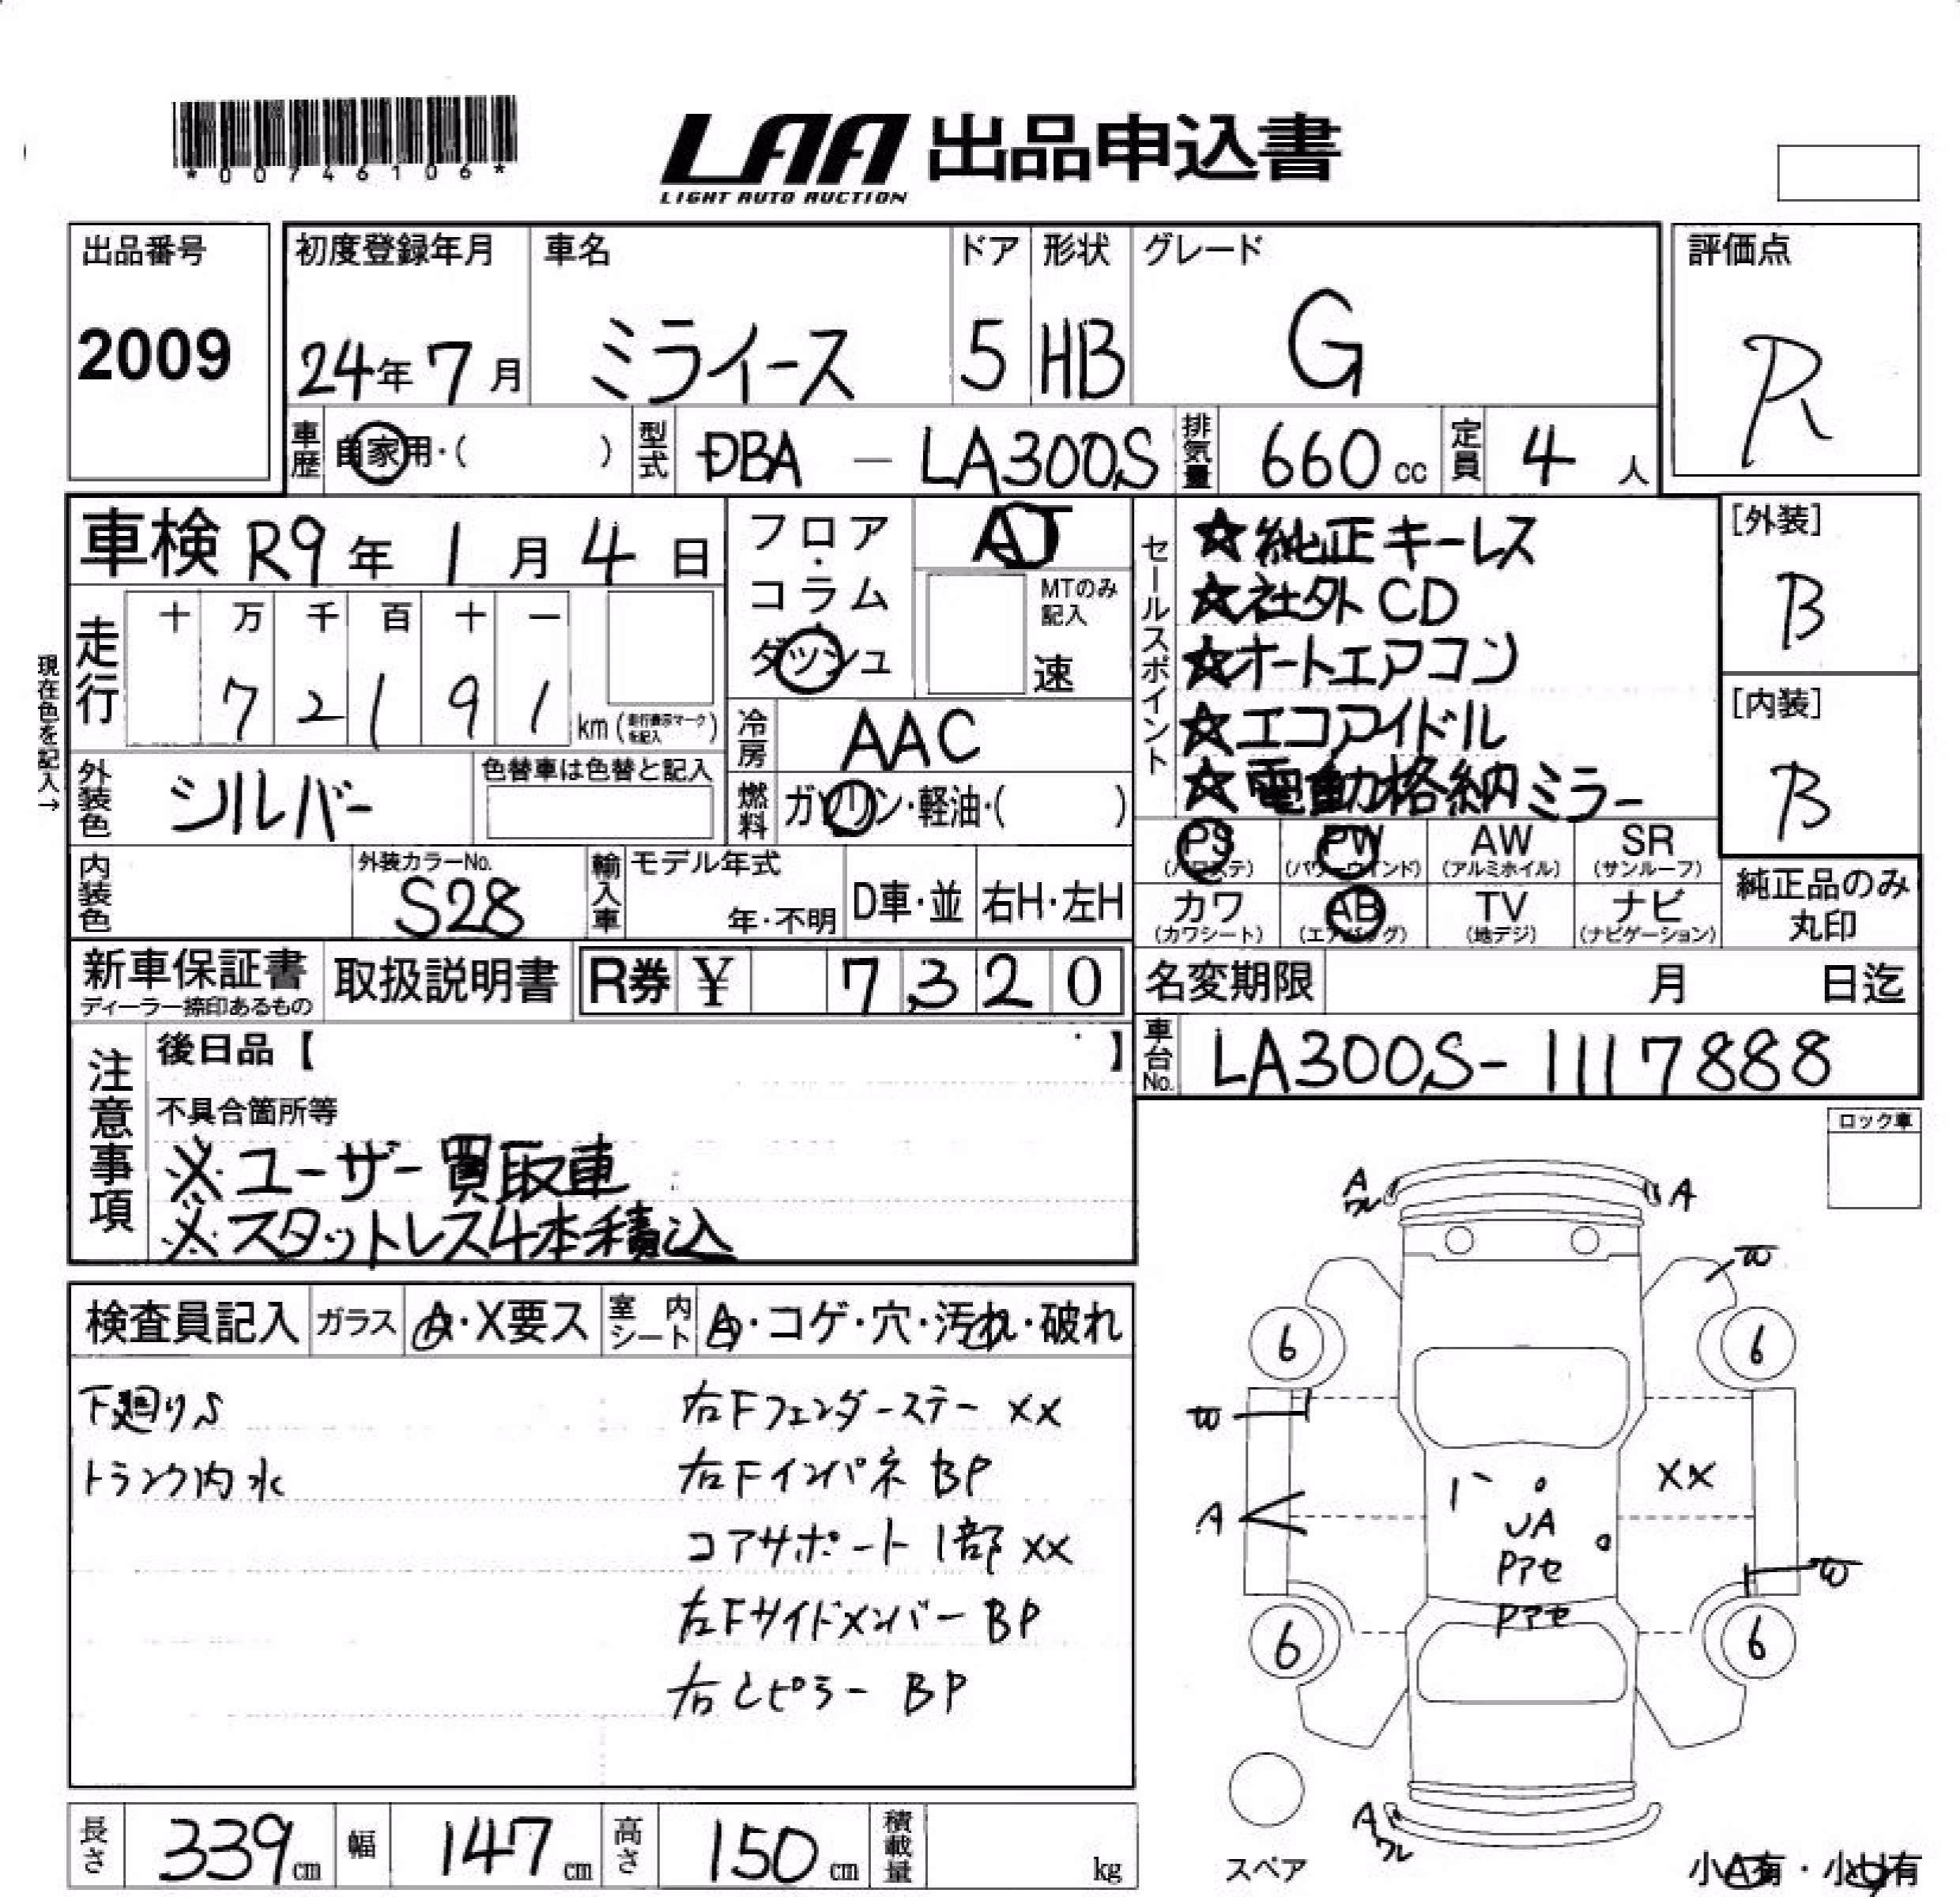 *00746106*
LAA 出品申込書
LIGHT AUTO AUCTION
出品番号
2009
初度登録年月
24年7月
車名
ミライース
ドア
5
形状
HB
グレード
G
評価点
R
車歴
自家用・( )
型式
DBA - LA300S
排気量
660 cc
定員
4 人
車検 R9年 1月 4日
現在色を記入→
走行
十 万 千 百 十 一
7 2 1 9 1 km (走行表示マークを記入)
フロア・コラム
ダッシュ
AT
MTのみ記入
速
冷房
AAC
燃料
ガソリン・軽油・( )
外装色
シルバー
色替車は色替と記入
内装色
外装カラーNo.
S28
輸入車
モデル年式
年・不明
D車・並
右H・左H
セールスポイント
☆純正キーレス
☆社外CD
☆オートエアコン
☆エコアイドル
☆電動格納ミラー
[外装]
B
[内装]
B
PS (パワステ)
PW (パワーウインド)
AW (アルミホイル)
SR (サンルーフ)
カワ (カワシート)
AB (エアバッグ)
TV (地デジ)
ナビ (ナビゲーション)
純正品のみ丸印
新車保証書
ディーラー捺印あるもの
取扱説明書
R券 ¥ 7,320
名変期限 月 日迄
車台No.
LA300S-1117888
注意事項
後日品【 】
不具合箇所等
※ユーザー買取車
※スタットレス4本積込
ロック車
検査員記入
ガラス
A・X要ス
室内シート
A・コゲ・穴・汚れ・破れ
下廻りS
トランク内水
右Fフェンダーステー XX
右Fインパネ BP
コアサポート1部 XX
左Fサイドメンバー BP
右Cピラー BP
A
ワレ
A
W
6
6
W
XX
A
UA
Pアセ
W
Pアセ
6
6
A
ワレ
スペア
小A有・小U有
長さ
339 cm
幅
147 cm
高さ
150 cm
積載量
kg